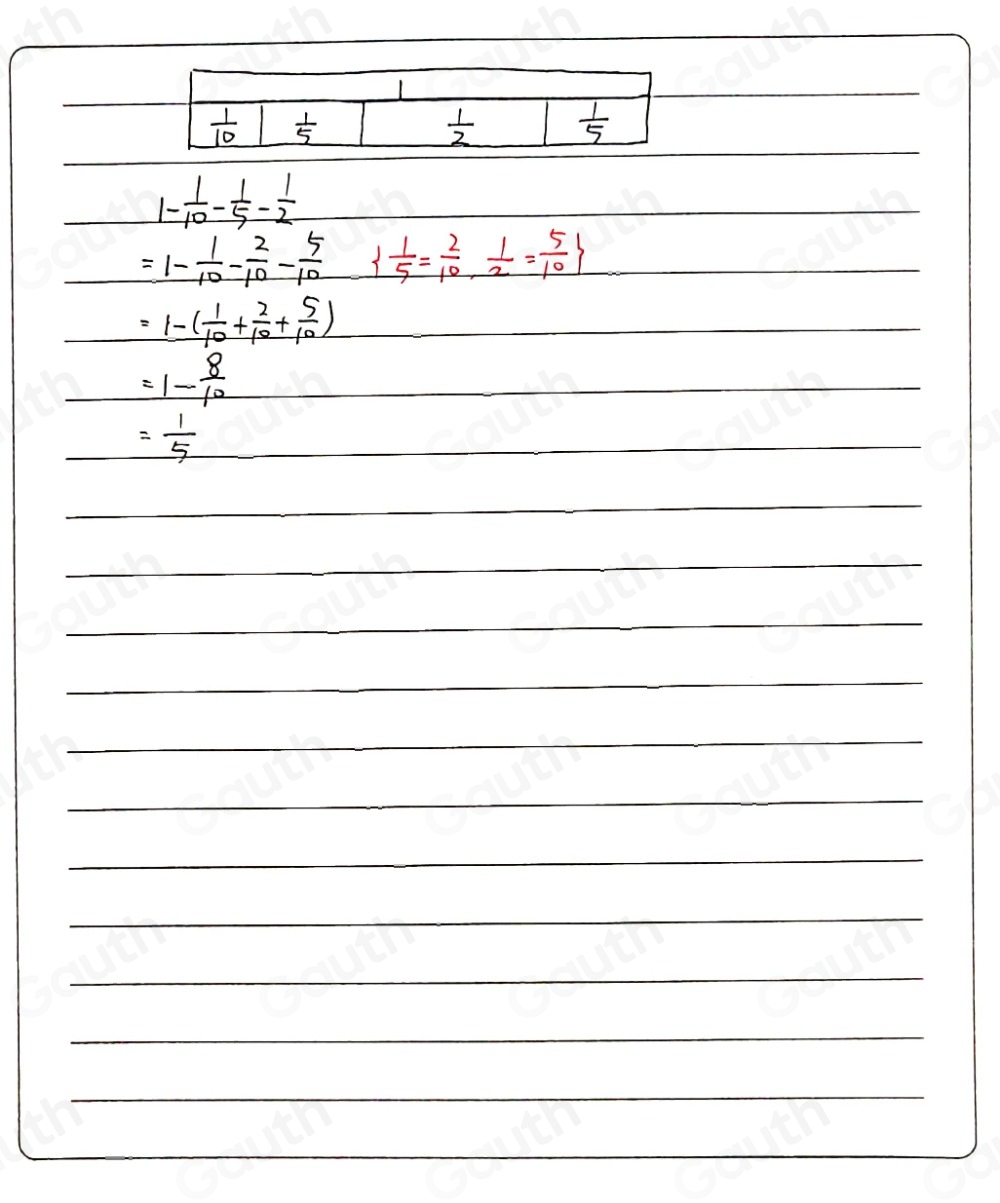 1
1/10 1/5 1/2 1/5
1-1/10-1/5-1/2
=1-1/10-2/10-5/10 {1/5=2/10, 1/2=5/10}
=1-(1/10+2/10+5/10)
=1-8/10
=1/5